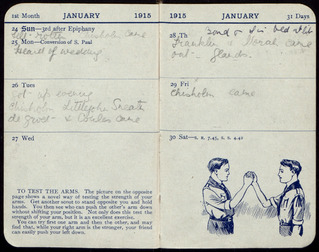 1st Month JANUARY 1915
24 Sun—3rd after Epiphany
came
25 Mon—Conversion of S. Paul
heard of wedding
26 Tues
got up evening
Chisholm
& came
27 Wed
TO TEST THE ARMS. The picture on the opposite
page shows a novel way of testing the strength of your
arms. Get another scout to stand opposite you and hold
hands. You then see who can push the other's arm down
without shifting your position. Not only does this test the
strength of your arm, but it is an excellent exercise.
You can try first one arm and then the other, and may
find that, while your right arm is the stronger, your friend
can easily push your left down.
1915 JANUARY 31 Days
28 Th
Franklin & Norah came
out
29 Fri
Chisholm came
30 Sat—S. R. 7.45, S. S. 4.42